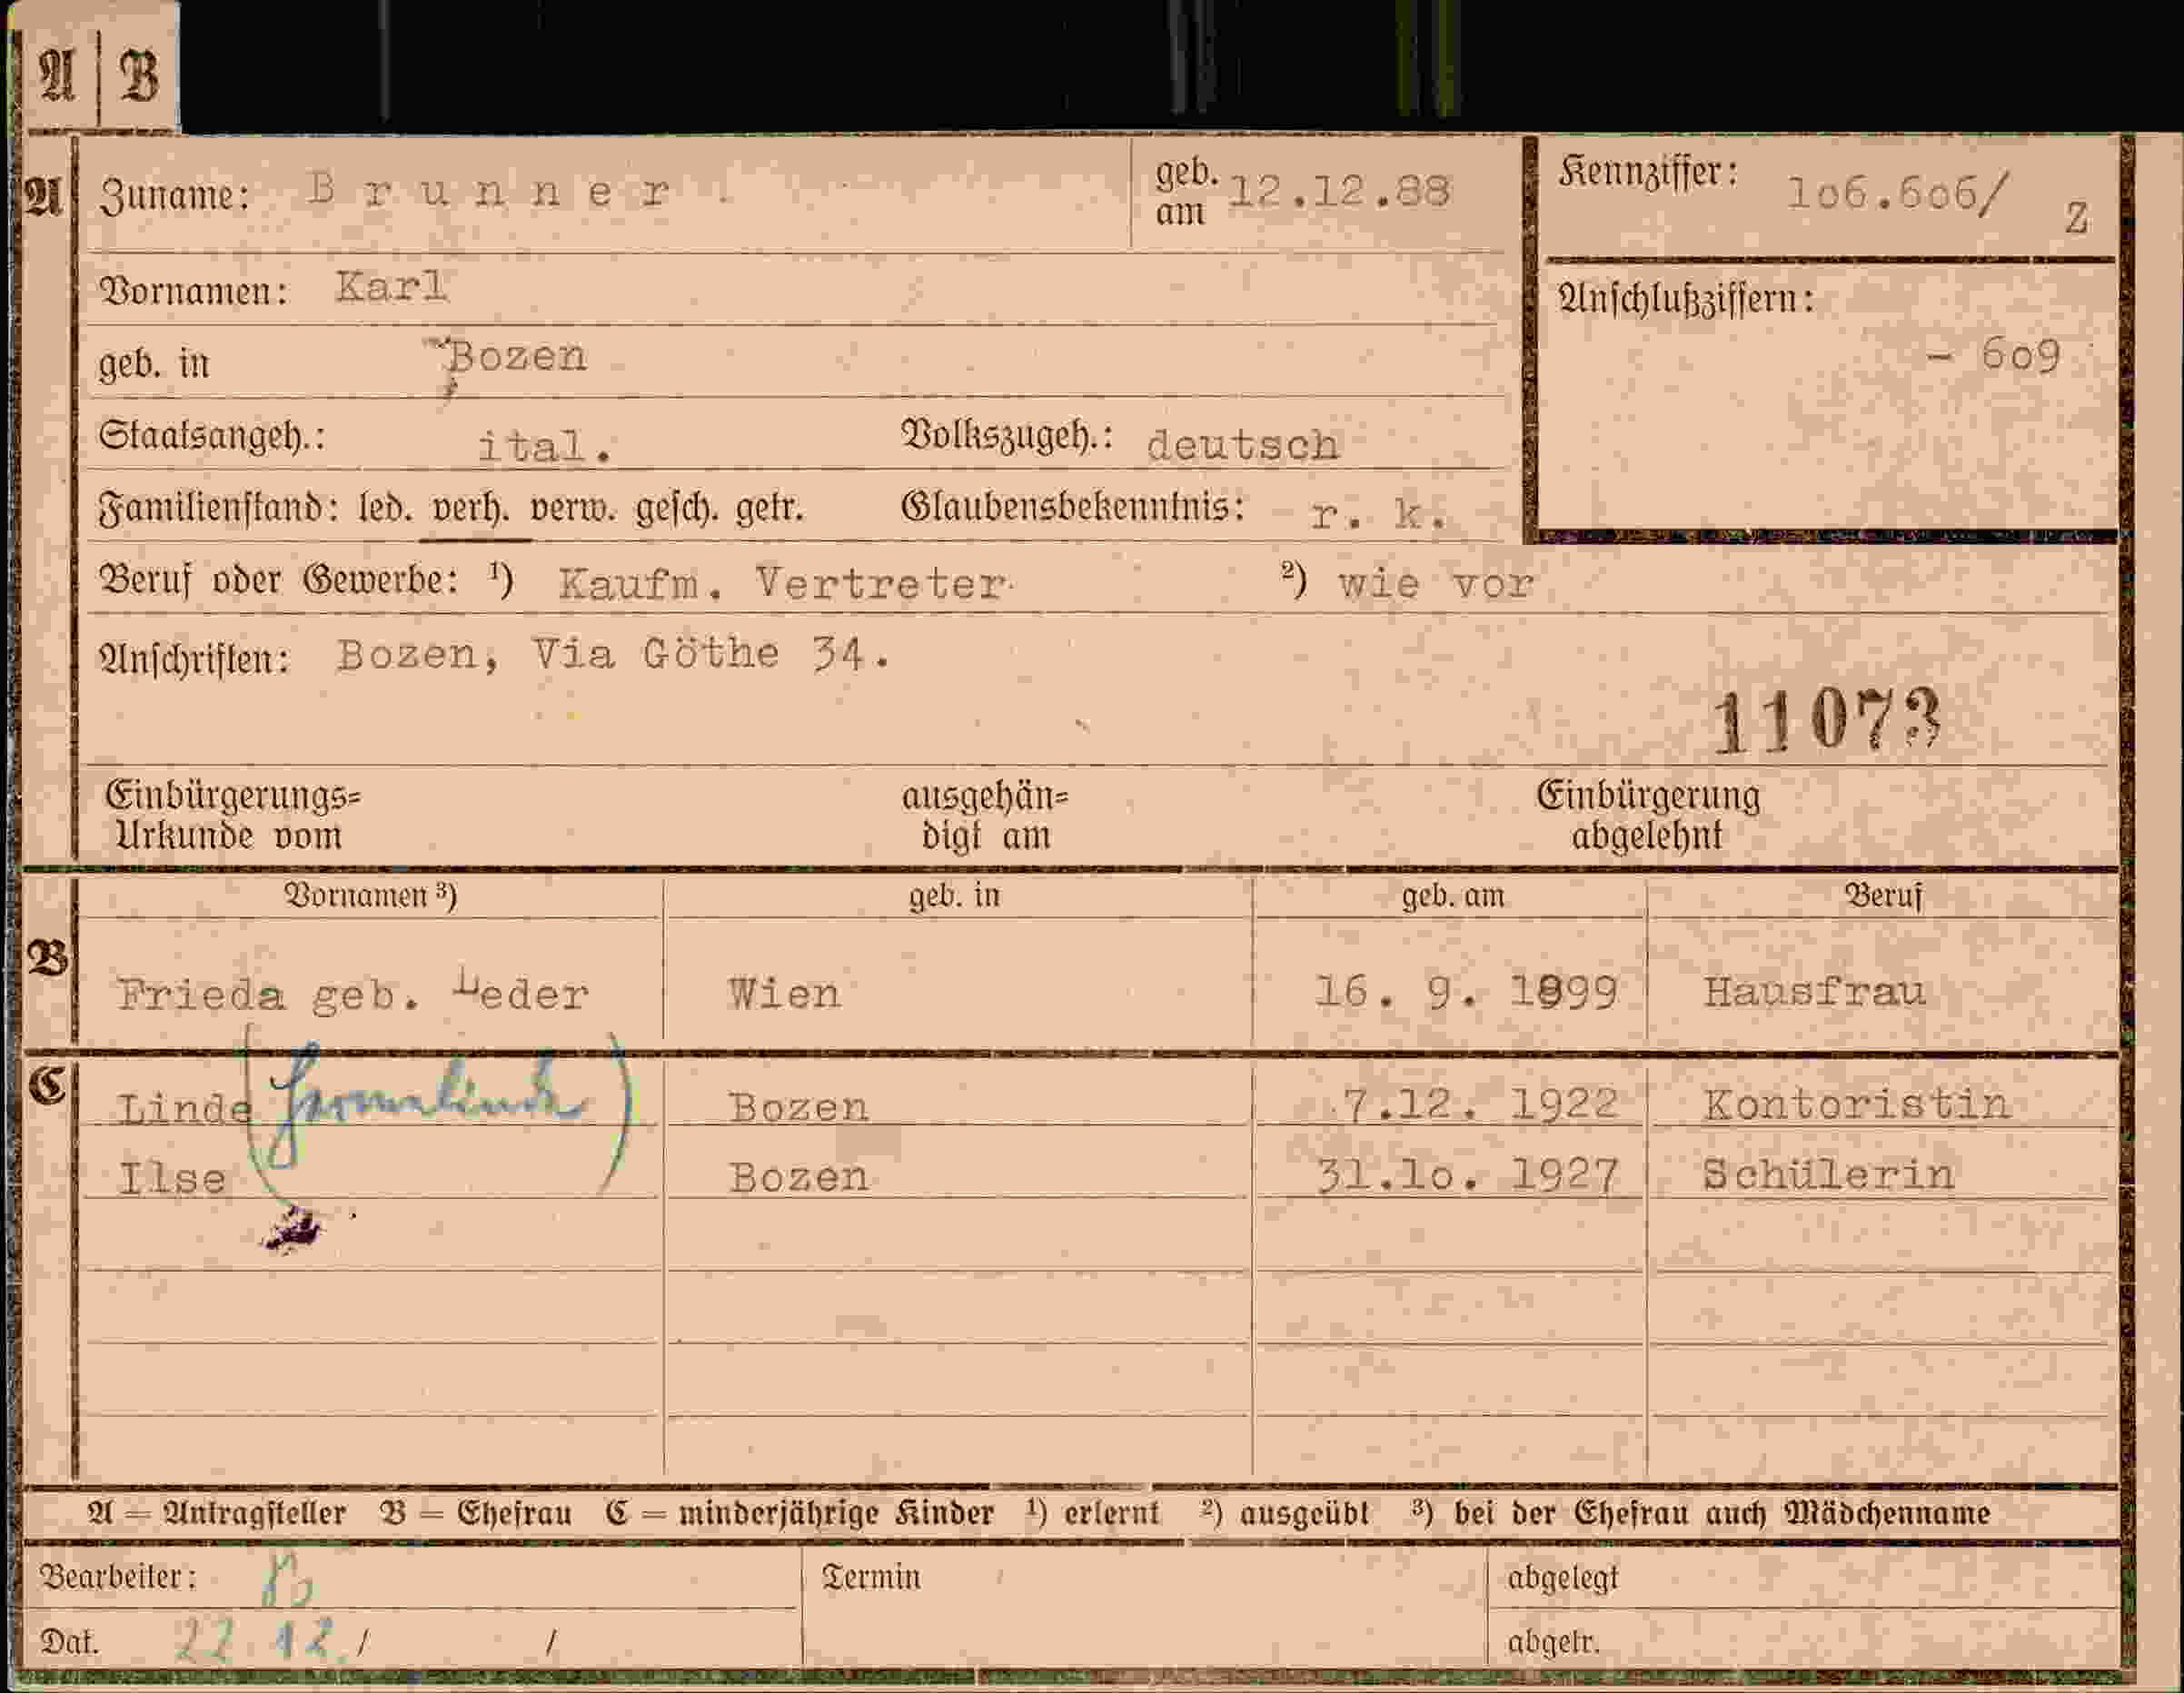 A | B
A Zuname: Brunner. geb. am 12.12.88 Kennziffer: 106.606/ Z
Vornamen: Karl Anschlußziffern:
geb. in Bozen - 609
Staatsangeh.: ital. Volkszugeh.: deutsch
Familienstand: led. verh. verw. gesch. getr. Glaubensbekenntnis: r. k.
Beruf oder Gewerbe: ¹) Kaufm. Vertreter ²) wie vor
Anschriften: Bozen, Via Göthe 34.
11073
Einbürgerungs= ausgehän= Einbürgerung
Urkunde vom digt am abgelehnt
Vornamen ³) geb. in geb. am Beruf
B Frieda geb. Leder Wien 16. 9. 1899 Hausfrau
C Linde Bozen 7.12. 1922 Kontoristin
Ilse Bozen 31.10. 1927 Schülerin
A = Antragsteller B = Ehefrau C = minderjährige Kinder ¹) erlernt ²) ausgeübt ³) bei der Ehefrau auch Mädchenname
Bearbeiter: Termin abgelegt
Dat. 22 12. / / abgetr.